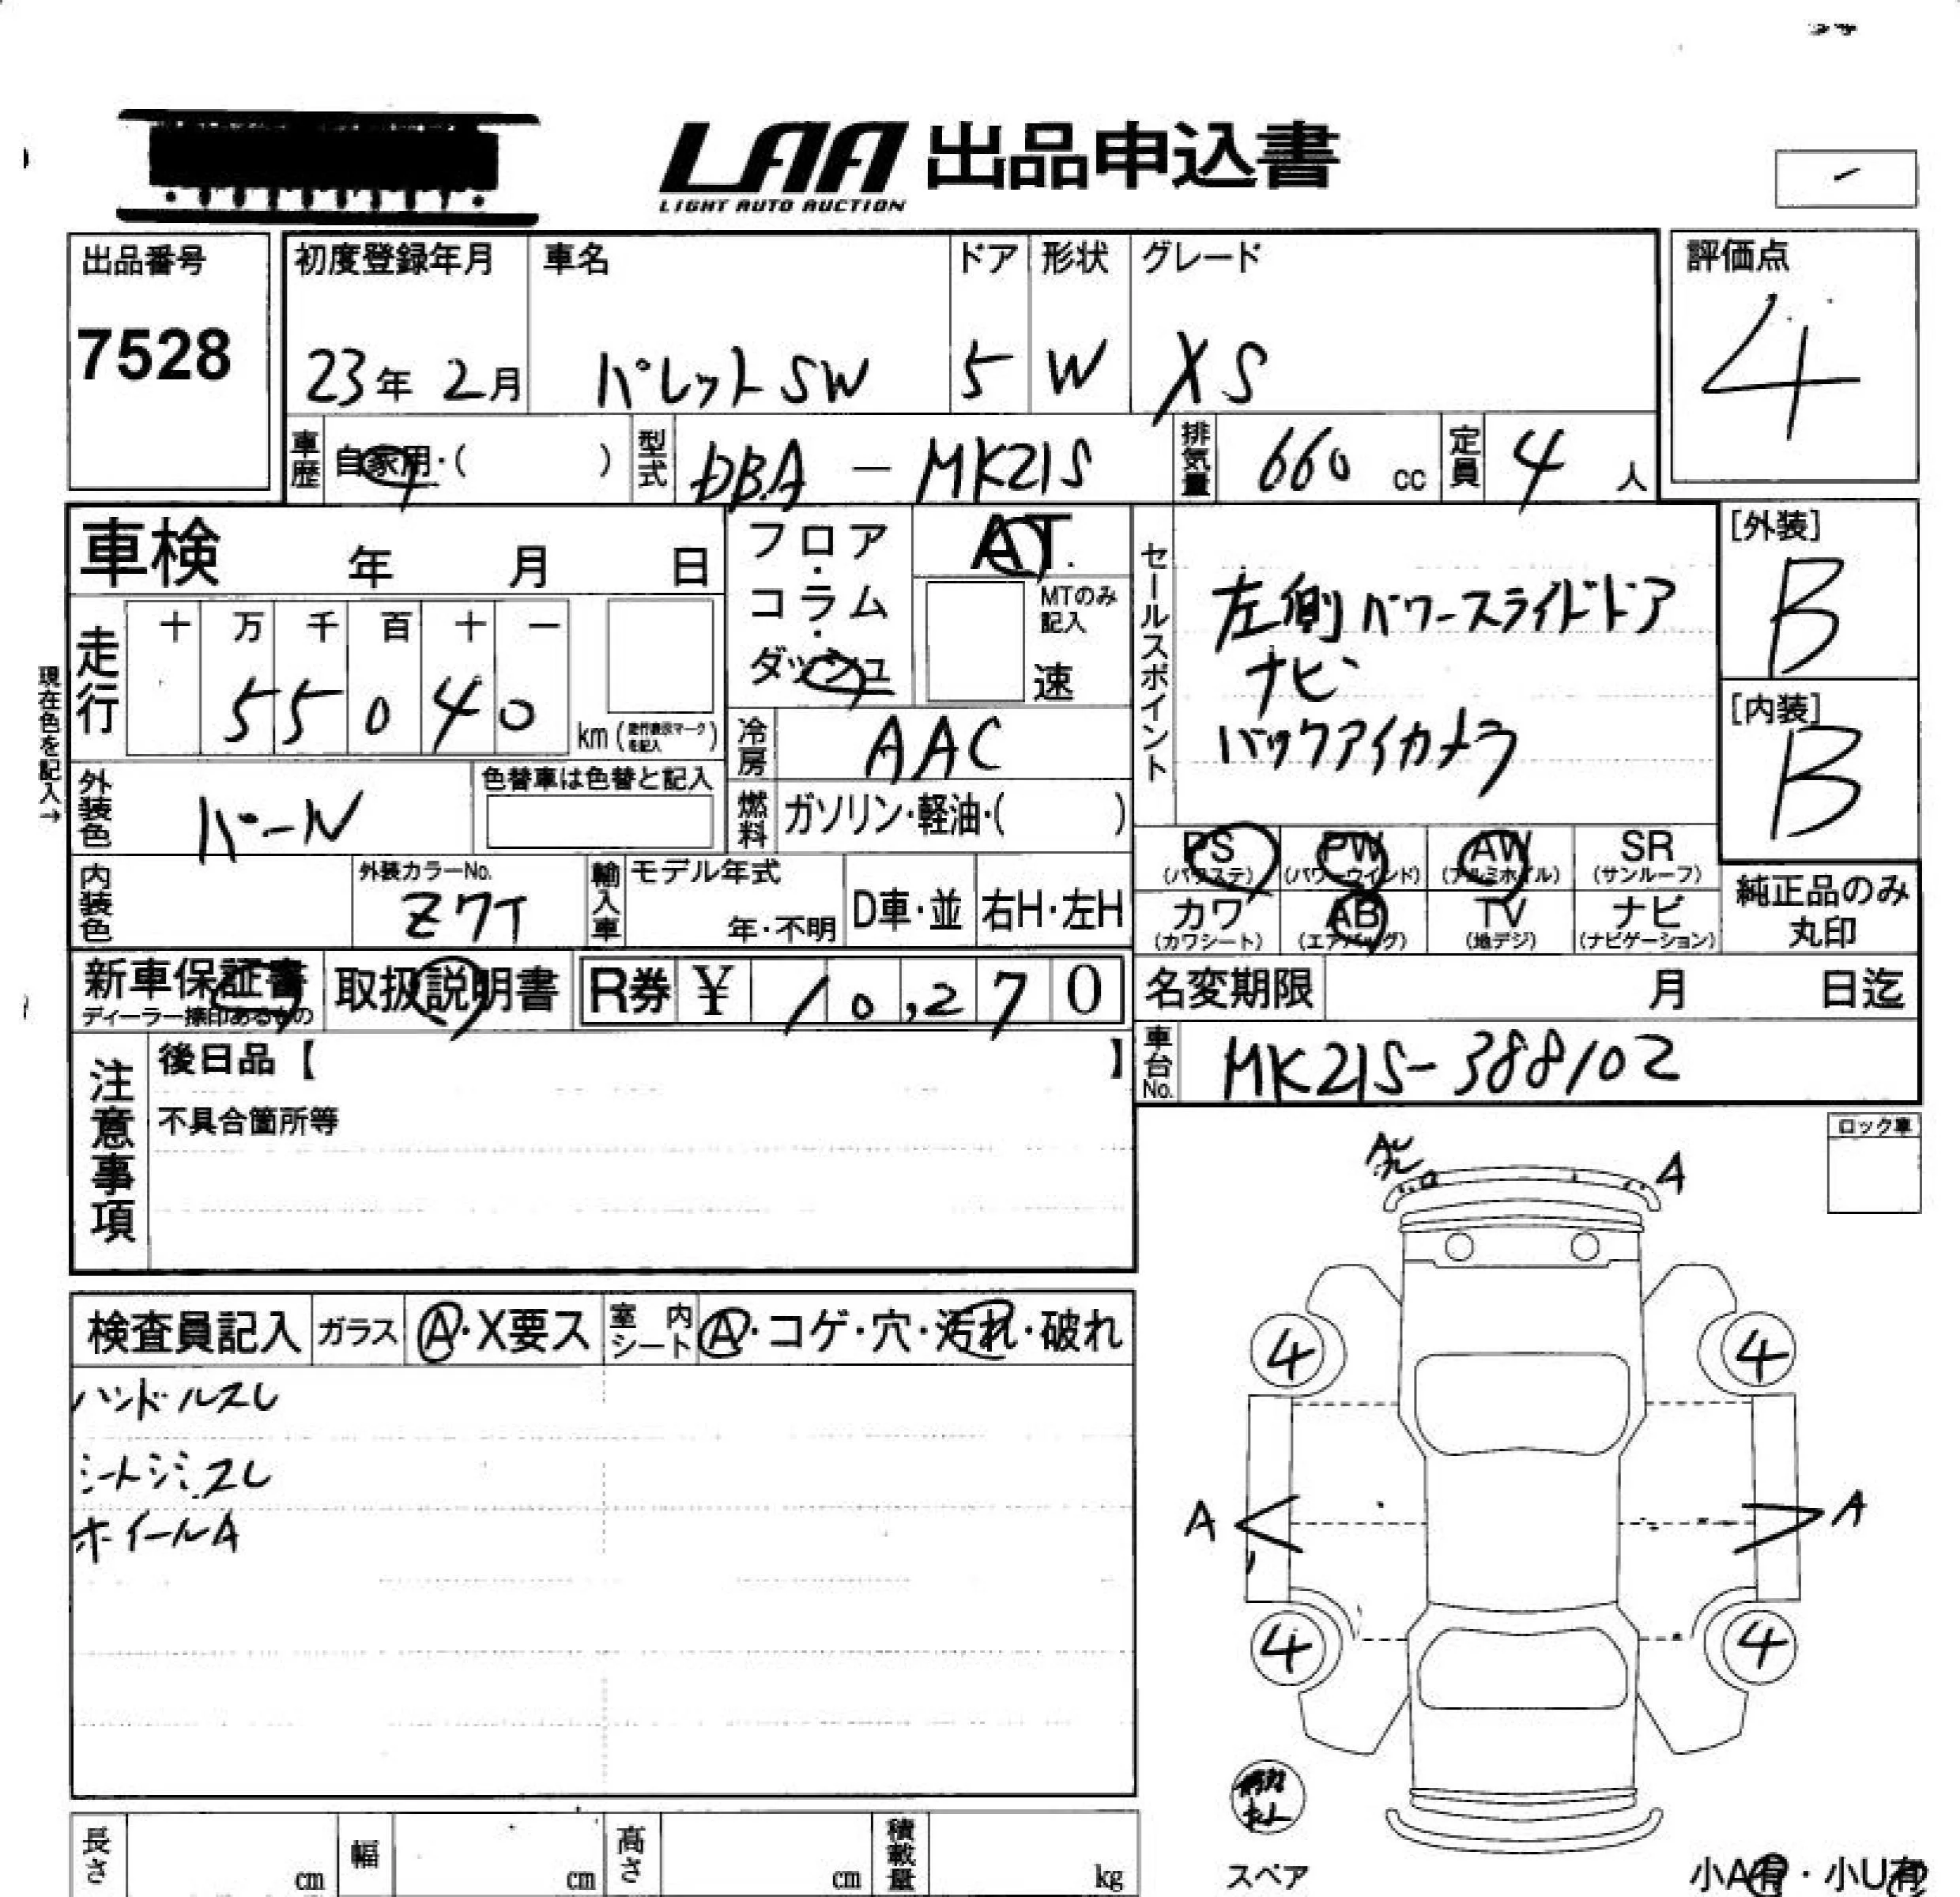 LAA 出品申込書
LIGHT AUTO AUCTION
出品番号
7528
初度登録年月
23年 2月
車名
パレットSW
ドア
5
形状
W
グレード
XS
評価点
4
車歴
自家用・( )
型式
DBA - MK21S
排気量
660 cc
定員
4 人
車検 年 月 日
フロア・コラム・ダッシュ
AT.
MTのみ記入
速
セールスポイント
左側パワースライドドア
ナビ
バックアイカメラ
[外装]
B
[内装]
B
現在色を記入→
走行
十 万 千 百 十 一
5 5 0 4 0
km (走行表示マークを記入)
冷房
AAC
外装色
パール
色替車は色替と記入
燃料
ガソリン・軽油・( )
PS
(パワステ)
PW
(パワーウインド)
AW
(アルミホイル)
SR
(サンルーフ)
カワ
(カワシート)
AB
(エアバッグ)
TV
(地デジ)
ナビ
(ナビゲーション)
純正品のみ
丸印
内装色
外装カラーNo.
Z7T
輸入車
モデル年式
年・不明
D車・並
右H・左H
新車保証書
ディーラー捺印あるもの
取扱説明書
R券 ¥ 10,270
名変期限 月 日迄
車台No.
MK21S-388102
注意事項
後日品【 】
不具合箇所等
ロック車
A
検査員記入
ガラス
A・X要ス
室内シート
A・コゲ・穴・汚れ・破れ
ハンドルスレ
シートシミ.スレ
ホイールA
4 4
A A
4 4
スペア
小A有・小U有
長さ cm
幅 cm
高さ cm
積載量 kg